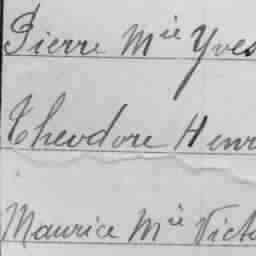 Pierre Mie Yves
Théodore Henri
Maurice Mie Victo